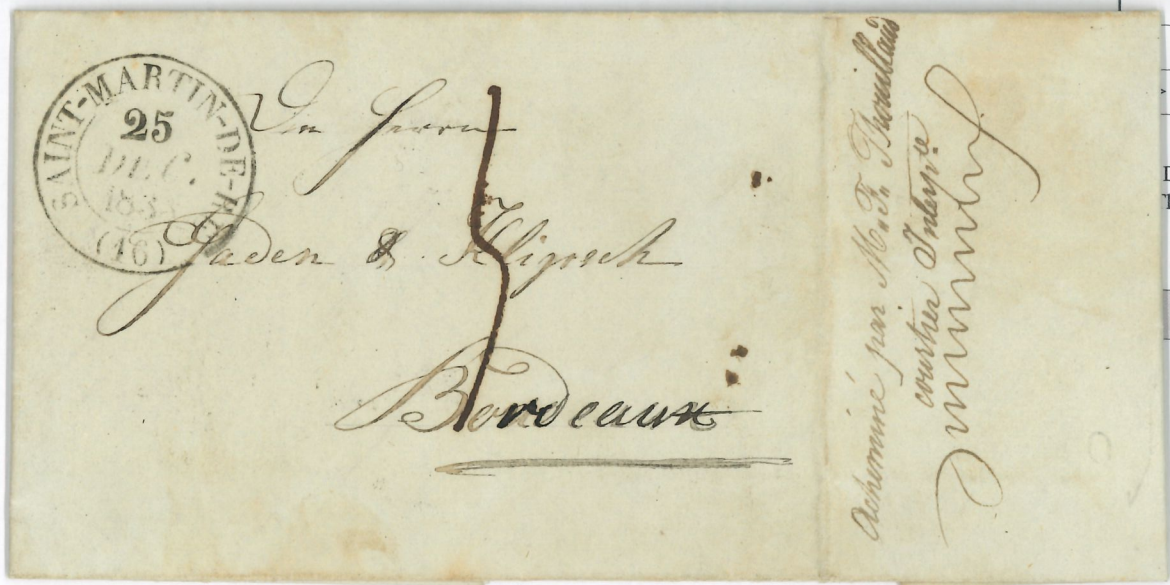 SAINT-MARTIN-DE-RE
25
DEC.
183
(16)
Den Herrn
Gaden & Klipsch
Bordeaux
Acheminé par M. Fr. Brouillaud
courtier Interpte